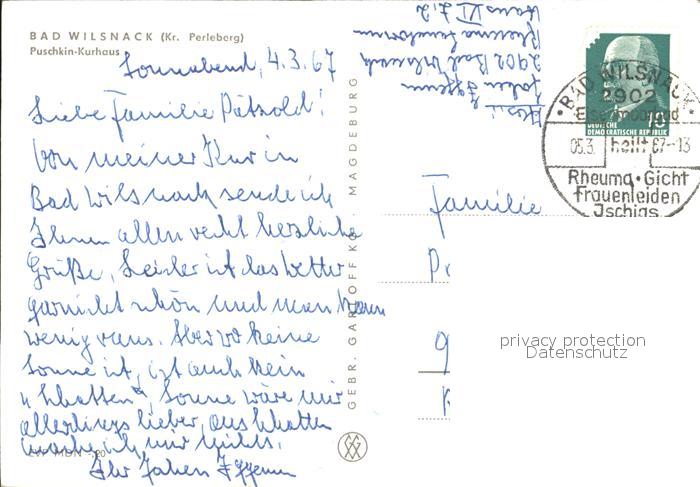 BAD WILSNACK (Kr. Perleberg)
Puschkin-Kurhaus
Sonnabend, 4.3.67
Liebe Familie Pätzold!
Von meiner Kur in
Bad Wilsnack sende ich
Ihnen allen recht herzliche
Grüße. Leider ist das Wetter
garnicht schön und man kann
wenig raus. Aber wo keine
Sonne ist, ist auch kein
"Schatten", Sonne wäre mir
allerdings lieber, aus Schatten
mache ich mir nichts.
Ihr
MDN -,20
GEBR. GARLOFF KG. MAGDEBURG
Abs.:
2902 Bad Wilsnack
Haus VI Z. 2
DEUTSCHE
DEMOKRATISCHE REPUBLIK
10
BAD WILSNACK
2902
Eisenmoorbad
05.3. heilt 67-13
Rheuma · Gicht
Frauenleiden
Ischias
Familie
privacy protection
Datenschutz